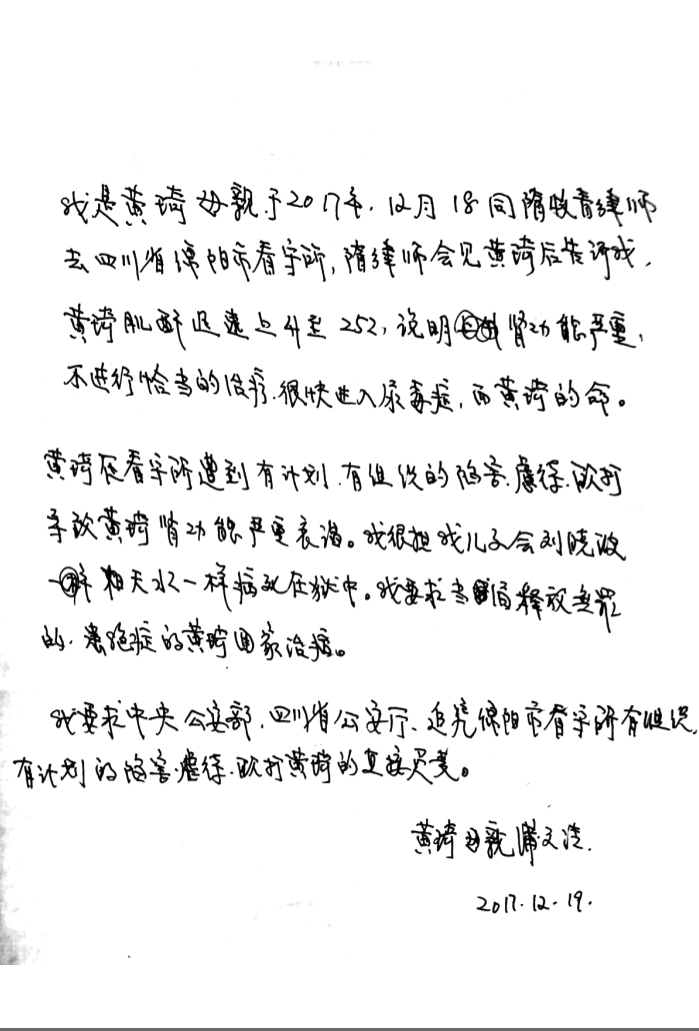 我是黄琦母亲于2017年.12月18同隋牧青律师
去四川省绵阳市看守所,隋律师会见黄琦后告诉我,
黄琦肌酐迅速上升至252,说明肾功能严重,
不进行恰当的治疗.很快进入尿毒症,而黄琦的命。
黄琦在看守所遭到有计划.有组织的陷害.虐待.欧打
导致黄琦肾功能严重衰谒。我很担我儿子会刘晓波
一样 天水一样病死在狱中。我要求当局释放无罪
的.患绝症的黄琦回家治病。
我要求中央公安部.四川省公安厅.追究绵阳市看守所有组织,
有计划的陷害.虐待.欧打黄琦的直接
黄琦母亲蒲文清.
2017.12.19.